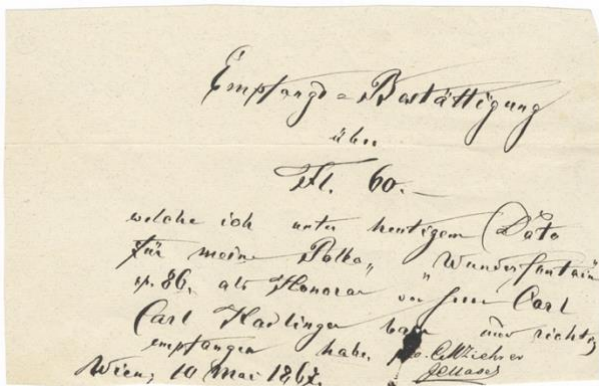 Empfangs=Bestättigung
über
Fl. 60.—
welche ich unter heutigem Dato
für meine Polka „Wunderfontain"
op. 86. als Honorar von Herrn Carl
Carl Haslinger baar und richtig
empfangen habe. C. M. Ziehrer
Wien, 10 Mai